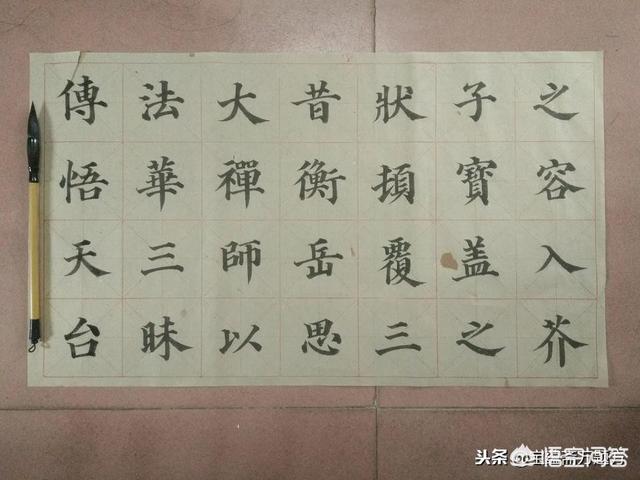 之容入芥
子寶盖之
狀頓覆三
昔衡岳思
大禪師以
法華三昧
傳悟天台
头条
悟空问答